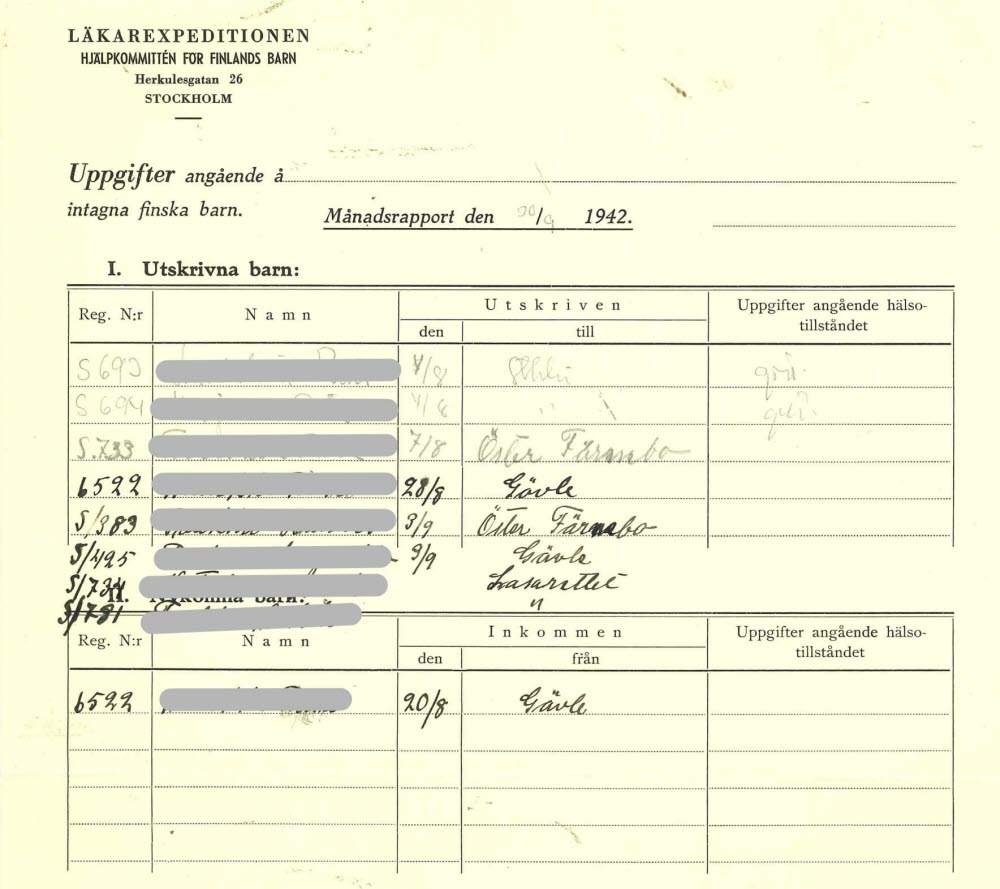 LÄKAREXPEDITIONEN
HJÄLPKOMMITTÉN FÖR FINLANDS BARN
Herkulesgatan 26
STOCKHOLM
Uppgifter angående å
intagna finska barn. Månadsrapport den 30/9 1942.
I. Utskrivna barn:
Reg. N:r Namn Utskriven Uppgifter angående hälso-
den till tillståndet
S 693 4/8
S 694 4/8 "
S.733 7/8 Öster Färnebo
6522 28/8 Gävle
S/383 3/9 Öster Färnebo
S/495 9/9 Gävle
S/734 Lasarettet
II. Nykomna barn:
S/781 "
Reg. N:r Namn Inkommen Uppgifter angående hälso-
den från tillståndet
6522 20/8 Gävle